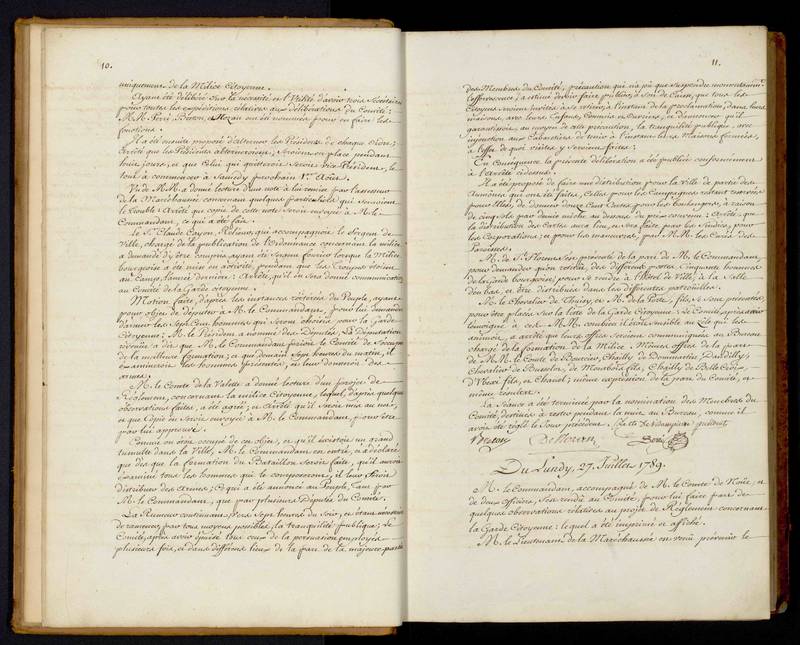 10.
uniquement de la Milice Citoyenne.
Ayant été délibéré sur la nécessité et l'Utilité d'avoir trois Secrétaires
pour toutes les expéditions relatives aux délibérations du Comité:
M.M. Perri, Breton, et ont été nommés pour en faire les
fonctions.
Il a été ensuite proposé d'alterner les Présidents de chaque Ordre;
Arrêté que les Présidents alterneroient; Seroient en place pendant
trois jours, et que Celui qui quitteroit Seroit vice-Président, le
tout à commencer à Samedy prochain 1er Août.
Un de M.M. a donné lecture d'une note à lui remise par l'assesseur
de la Maréchaussée concernant quelques particuliers qui Semoient
le trouble: Arrêté que copie de cette note Seroit envoyée à M. le
Commandant, ce qui a été fait.
Le Sr. Claude Coyon, Relieur, qui accompagnoit le Sergent de
Ville, chargé de la publication de l'Ordonnance concernant la milice
a demandé d'y être compris, ayant été Sergent fourier lorsque la Milice
bourgeoise a été mise en activité, pendant que les Troupes étoient
au Camp, l'année dernière: Arrêté, qu'il en Sera donné communication
au Comité de la Garde citoyenne.
Motion faite, d'après les instances réitérées du Peuple, ayant
pour objet de députer à M. le Commandant, pour lui demander
d'armer les Sept Cent hommes qui Seront choisis pour la Garde
Citoyenne: M. le Président a nommé des Députés; La Députation
revenue a dit que M. le Commandant prioit le Comité de S'occuper
de la meilleure formation; et que demain Sept heures du matin, il
examineroit les hommes présentés, et leur donneroit des
armes.
M. le Comte de la Valette a donné lecture d'un projet de
Réglement, concernant la milice Citoyenne, lequel, d'après quelques
observations faites, a été agréé; et Arrêté qu'il Seroit mis au net,
et que Copie en Seroit envoyée à M. le Commandant pour être
par lui approuvé.
Comme on étoit occupé de ces objets, et qu'il existoit un grand
tumulte dans la Ville, M. le Commandant est entré, et a déclaré
que dès que la formation du Bataillon Seroit faite, qu'il auroit
examiné tous les hommes qui le composeroient, il leur Feroit
distribuer des Armes; Ce qui a été annoncé au Peuple, tant par
M. le Commandant, que par plusieurs Députés du Comité.
La Rumeur continuant, vers Sept heures du Soir, et étant
de ramener par tous moyens possibles, la tranquilité publique; Le
Comité, après avoir épuisé tous ceux de la persuasion employés
plusieurs fois, et dans différens lieux de la part de la majeure partie
11.
des Membres du Comité, précaution qui n'a fait que suspendre momentanément
l'effervescence; a arrêté de faire publier, à Son de Caisse, que tous les
Citoyens Seroient Invités à Se retirer, à l'instant de la proclamation, dans leurs
maisons, avec leurs Enfans, Commis et Ouvriers, et d'annoncer qu'il
garantissoit, au moyen de cette précaution, la tranquilité publique, avec
injonction aux Cabaretiers de tenir à l'instant leurs Maisons fermées,
à l'effet de quoi visites y Seroient faites;
En Conséquence la présente délibération a été publiée conformément
à l'Arrêté cidessus.
Il a été proposé de faire une distribution pour la Ville de partie des
Aumônes qui ont été faites, Celles pour les Campagnes restant réservées
pour Elles, de donner douze Cent Cartes pour les boulangers, à raison
de cinq Sols par demie miche au dessous du prix courant: Arrêté que
la distribution des Cartes aura lieu, et Sera faite par les Sindics, pour
les Corporations; et pour les manœuvres, par M.M. les Curés des
Paroisses.
M. de St. Florent s'est présenté de la part de M. le Commandant,
pour demander qu'on retirât, des différents postes, Cinquante hommes
de la Garde bourgeoise, pour se rendre à l'Hôtel de Ville, à la Salle
d'en bas, et être distribués dans les différentes patrouilles.
M. le Chevalier de Thuisy, et M. de la Porte, fils, Se Sont présentés,
pour être placés Sur la liste de la Garde Citoyenne: Le Comité, après avoir
témoigné à ces M.M. combien il étoit Sensible au Zèle qui les
animoit, a arrêté que leurs offres Seroient communiquées au Bureau
chargé de la formation de la Milice. Mêmes offres de la part
de M.M. le Comte de Bourcier, Chailly de Dommartin,
Chevalier de Busselot, de Montbois fils, Chailly de Belle Croix,
d'Ubexi fils, et Chanel; même expression de la part du Comité, et
même renvoi.
La Séance a été terminée par la nomination des Membres du
Comité, destinés à rester pendant la nuit au Bureau, comme il
avoit été réglé le Jour précédent.
Doré
Du Lundy, 27. Juillet 1789.
M. le Commandant, accompagné de M. le Comte de Noüe, et
de deux Officiers, S'est rendu au Comité, pour lui faire part de
quelques observations relatives au projet de Réglement concernant
la Garde Citoyenne: lequel a été imprimé et affiché.
M. le Lieutenant de la Maréchaussée est venu prévenir le